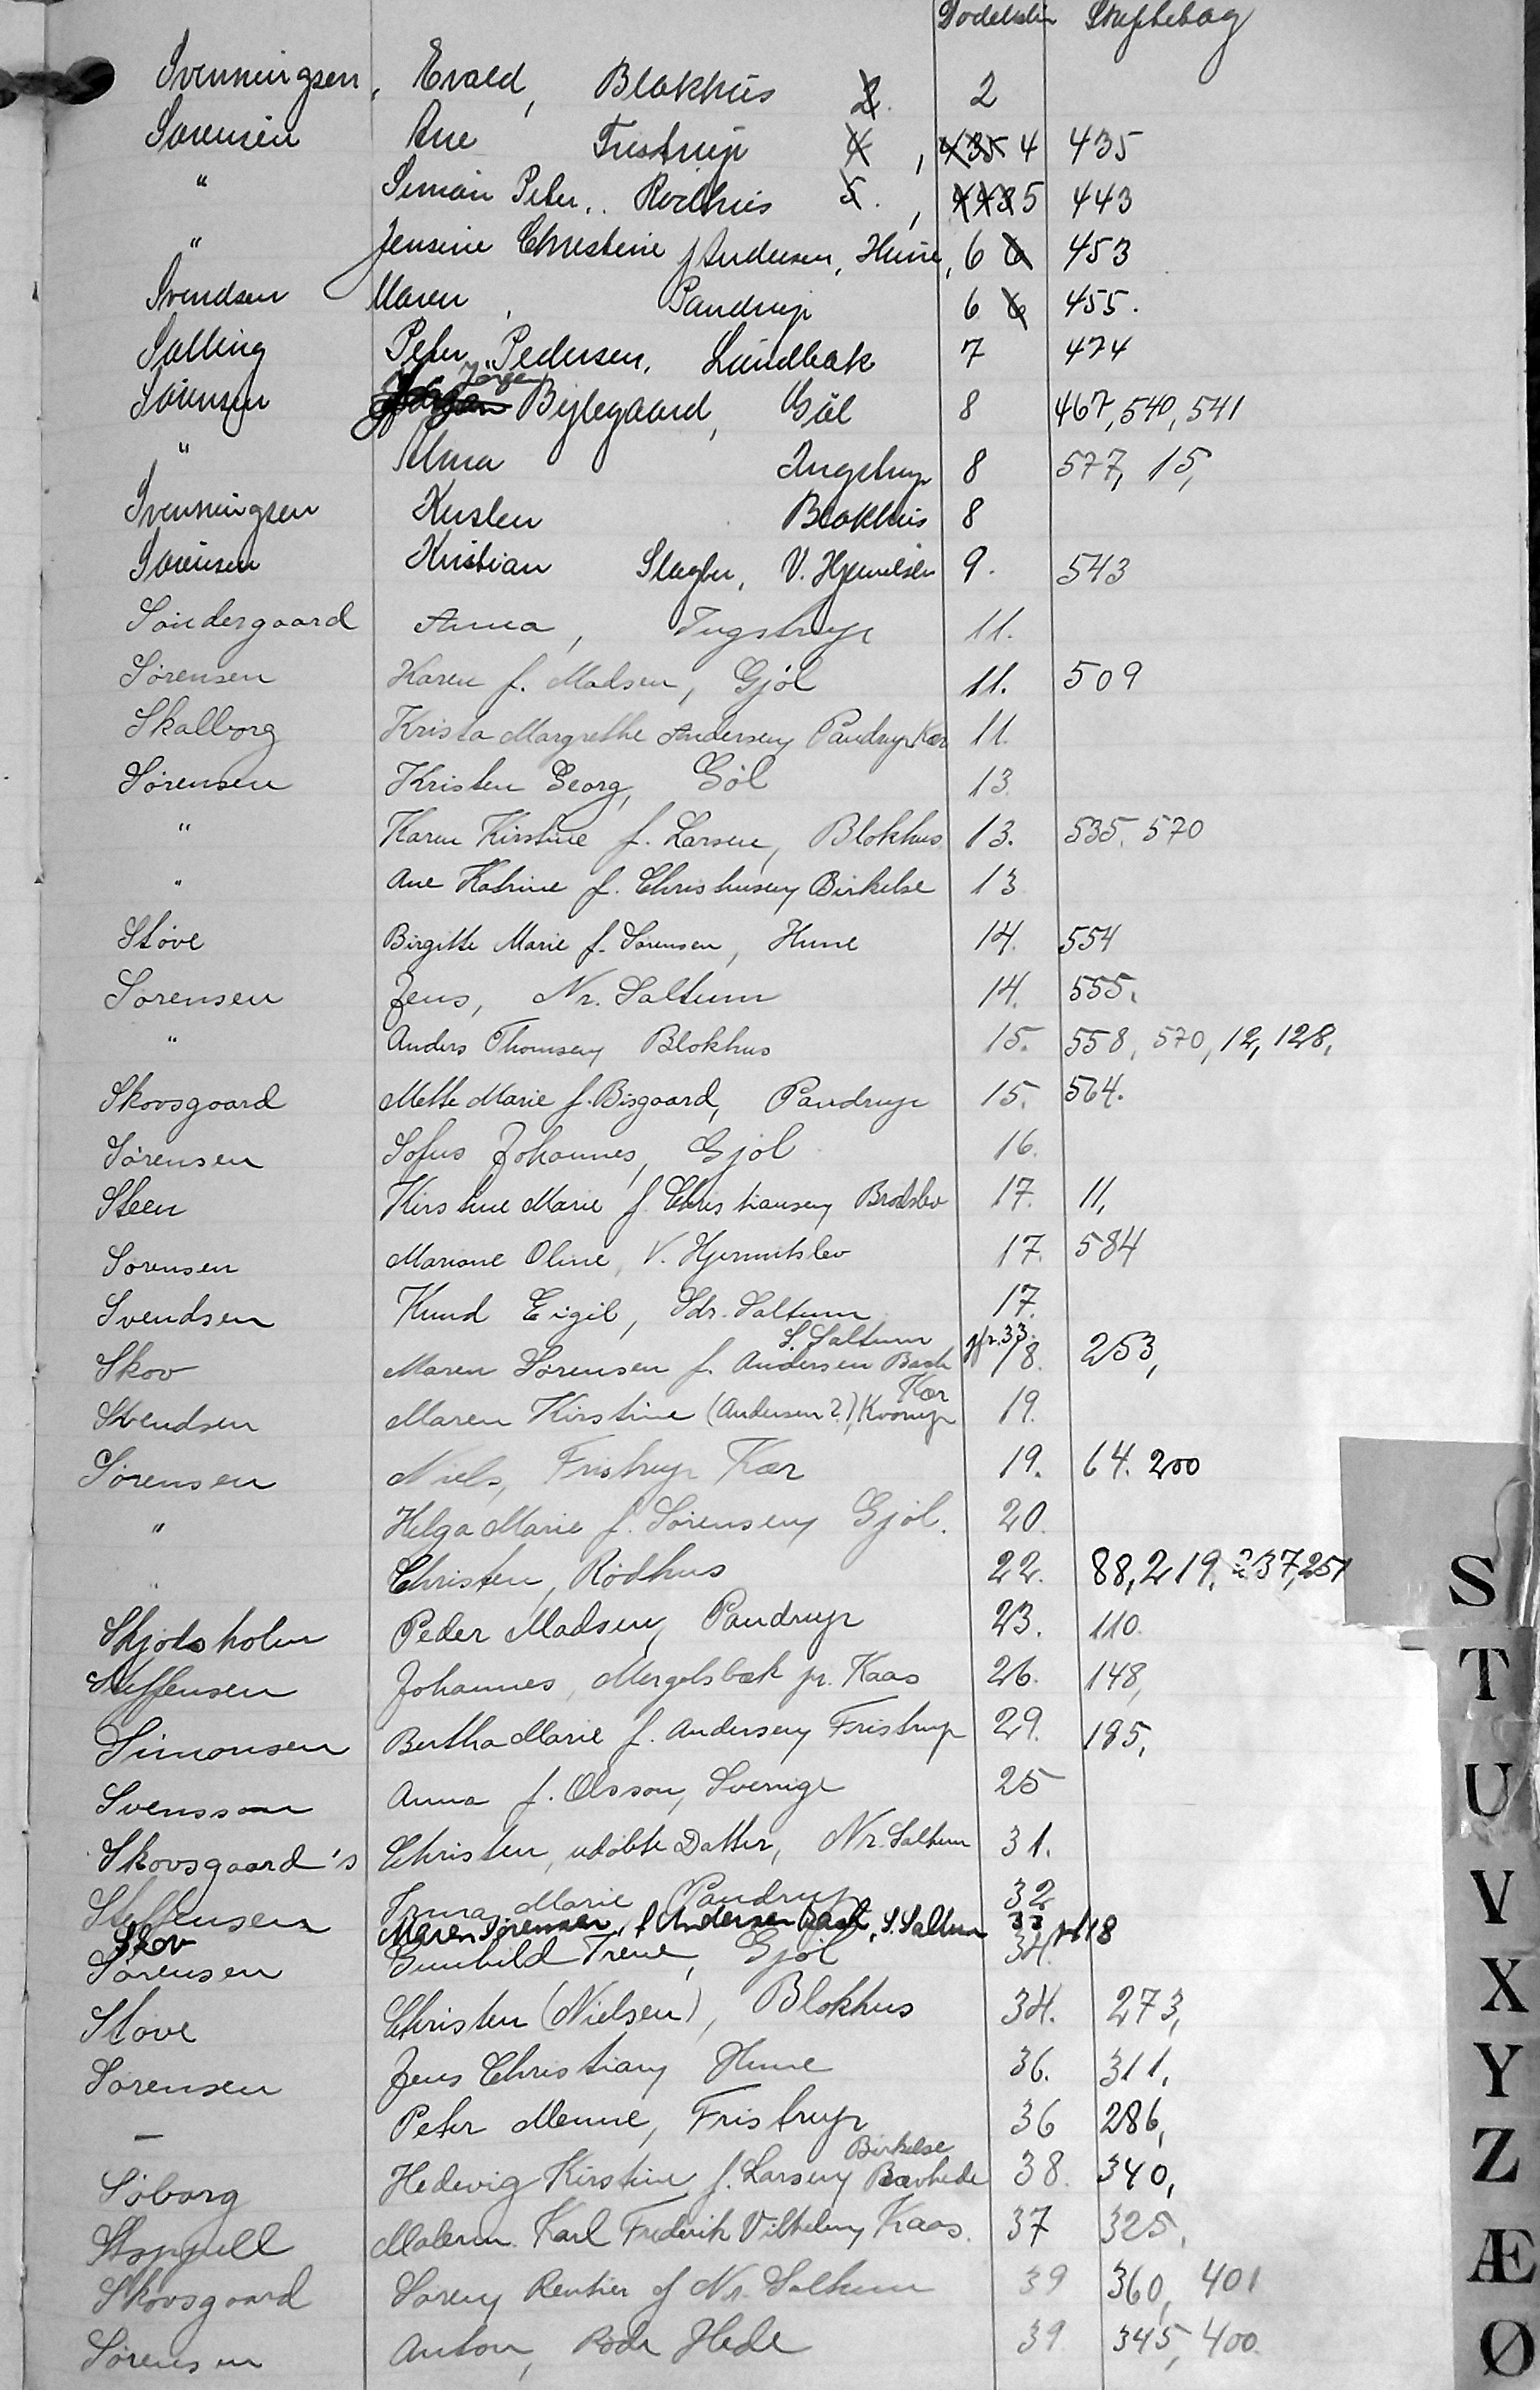 Dødelstn Skiftebog
Svenningsen, Evald, Blokhus 2. 2
Sørensen Ane Fristrup 4, 435 4 435
" Simon Peter, Rødhus 5., 443 5 443
" Jensine Christine f Andersen, Hune, 6 6 453
Svendsen Maren, Pandrup 6 6 455.
Salling Peter Pedersen, Lundbak 7 474
Sørensen Jørgen Jørgen Bejlegaard, Gøl 8 467, 540, 541
" Alma Ingstrup 8 577, 15,
Svenningsen Kirsten Blokhus 8
Sørensen Kristian Slagter, V. Hjermitslev 9. 543
Søndergaard Anna, Ingstrup 11.
Sørensen Karen f. Madsen, Gjøl 11. 509
Skalborg Krista Margrethe Andersen, Pandrup Kær 11.
Sørensen Kristen Georg, Gøl 13
" Karen Kirstine f. Larsen, Blokhus 13. 535, 570
" Ane Katrine f. Christensen, Birkelse 13
Støve Birgitte Marie f. Sørensen, Hune 14. 554
Sørensen Jens, Nr. Saltum 14. 555.
" Anders Thomsen, Blokhus 15. 558, 570, 12, 128,
Skovsgaard Mette Marie f. Bisgaard, Pandrup 15. 564.
Sørensen Sofus Johannes, Gjøl 16.
Steen Kirstine Marie f. Christiansen, Brødslev 17. 11,
Sørensen Mariane Oline, V. Hjermitslev 17. 584
Svendsen Knud Eigil, Sdr. Saltum 17.
S. Saltum jfr. 33.
Skov Maren Sørensen f. Andersen Bach 18. 253,
Kær
Svendsen Maren Kirstine (Andersen?), Kvorup 19.
Sørensen Niels, Fristrup Kær 19. 64. 200
" Helga Marie f. Sørensen, Gjøl. 20.
" Christen, Rødhus 22. 88, 219, 237, 251
Skjødsholm Peder Madsen, Pandrup 23. 110.
Steffensen Johannes, Mergelsbæk pr. Kaas 26. 148,
Simonsen Bertha Marie f. Andersen, Fristrup 29. 185,
Svensson Anna f. Olsson, Sverige 25
Skovsgaard's Christen, udøbte Datter, Nr. Saltum 31.
Steffensen Irma Marie Pandrup 32
Skov Maren Sørensen, f Andersen Bach, S. Saltum 33 jf 18
Sørensen Gunhild Irene, Gjøl 34.
Støve Christen (Nielsen), Blokhus 34. 273,
Sørensen Jens Christian, Hune 36. 311,
— Peter Menne, Fristrup 36 286,
Birkelse
Søborg Hedevig Kirstine f. Larsen, Bavnhede 38. 340,
Stoppell Malerm. Karl Frederik Vilhelm, Kaas. 37 325,
Skovsgaard Søren, Rentier af Nr. Saltum 39 360, 401
Sørensen Anton, Røde Hede 39 345, 400.
S
T
U
V
X
Y
Z
Æ
Ø